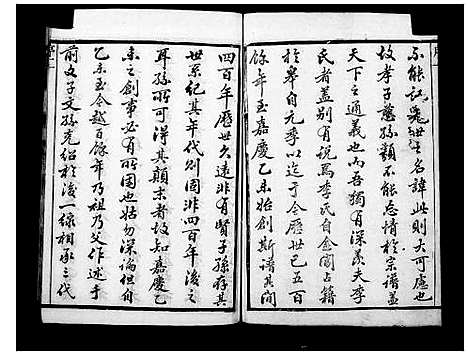 不能記憶世其名諱此則大可慮也
故孝子慈孫類不能忘情於宗譜蓋
天下之通義也而吾獨有深羨夫李
氏者蓋別有說焉李氏自金閶占籍
於皋自元季以迄於今歷世已五百
餘年至嘉慶乙未始創斯譜其間
四百年歷世久遠非有賢子孫存其
世系紀其年代則固非四百年後之
耳孫所可得其顛末者故知嘉慶乙
未之創事必有所因也姑勿深論但自
乙未至今越百餘年乃祖乃父作述于
前文子文孫克紹於後一線相承三代